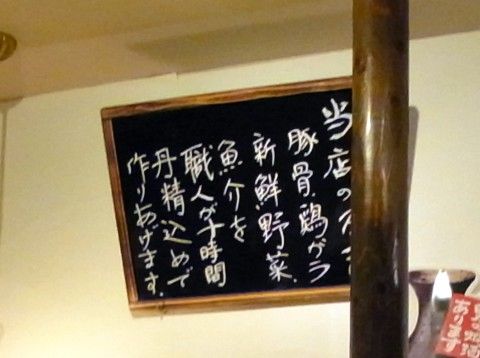 当店の
豚骨、鶏ガラ
新鮮野菜、
魚介を
職人が十時間
丹精込めて
作りあげます。
あります